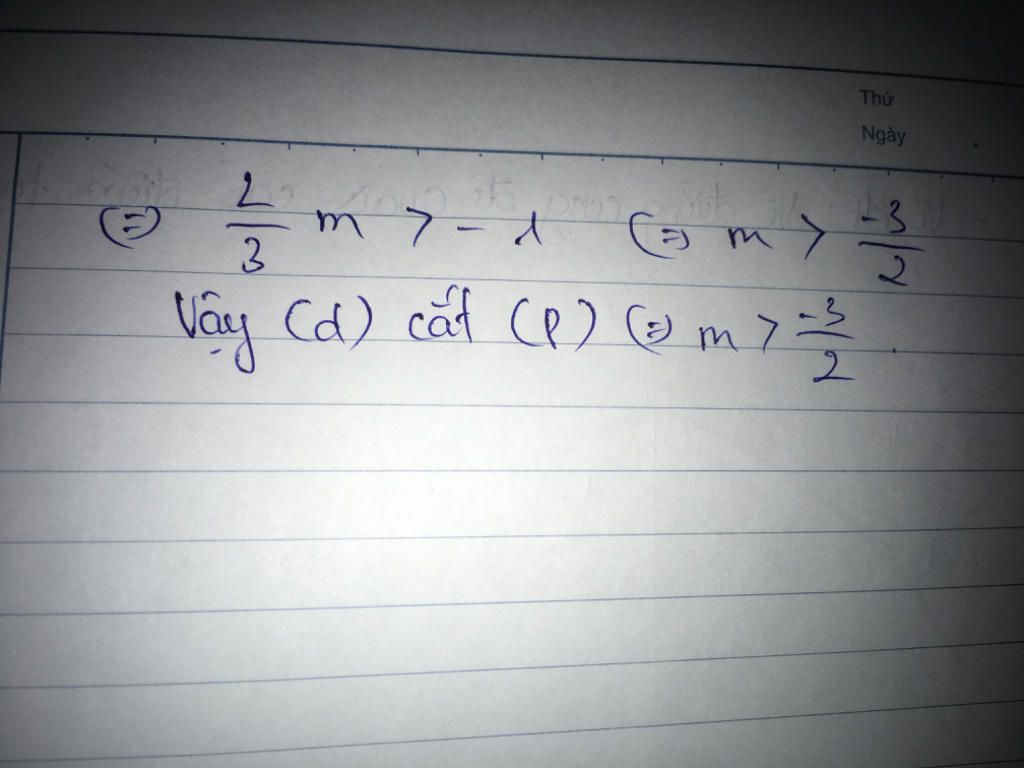 Thứ
Ngày
(=) 2/3 m > - 1 (=) m > -3/2
Vậy (d) cắt (P) (=) m > -3/2.